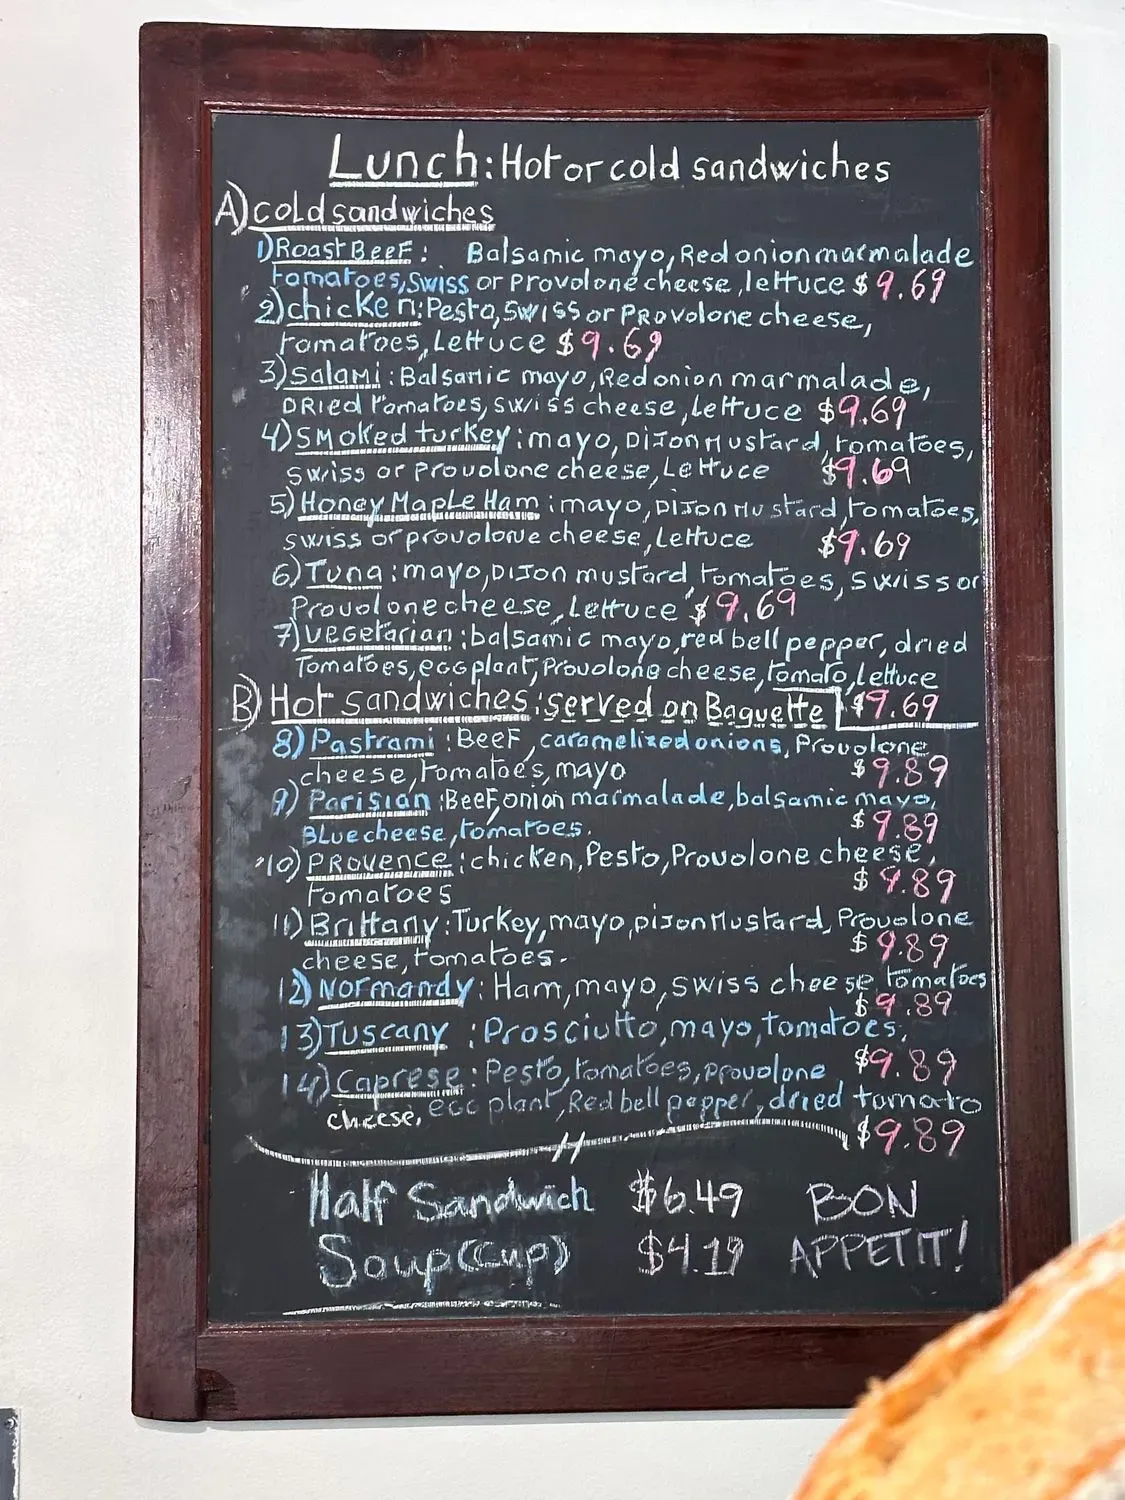 Lunch: Hot or cold sandwiches
A) cold sandwiches
1) Roast Beef: Balsamic mayo, Red onion marmalade
tomatoes, Swiss or Provolone cheese, lettuce $9.69
2) chicken: Pesto, Swiss or Provolone cheese,
tomatoes, Lettuce $9.69
3) Salami: Balsamic mayo, Red onion marmalade,
DRied tomatoes, swiss cheese, lettuce $9.69
4) Smoked turkey: mayo, Dijon Mustard, tomatoes,
swiss or provolone cheese, Lettuce $9.69
5) Honey Maple Ham: mayo, Dijon Mustard, tomatoes,
swiss or provolone cheese, Lettuce $9.69
6) Tuna: mayo, Dijon mustard, tomatoes, swiss or
Provolone cheese, Lettuce $9.69
7) vegetarian: balsamic mayo, red bell pepper, dried
Tomatoes, eggplant, Provolone cheese, tomato, lettuce
B) Hot sandwiches: served on Baguette $9.69
8) Pastrami: Beef, caramelized onions, Provolone
cheese, tomatoes, mayo $9.89
9) Parisian: Beef, onion marmalade, balsamic mayo,
Blue cheese, tomatoes. $9.89
10) Provence: chicken, Pesto, Provolone cheese,
Tomatoes $9.89
11) Brittany: Turkey, mayo, Dijon Mustard, Provolone
cheese, tomatoes. $9.89
12) Normandy: Ham, mayo, swiss cheese, tomatoes
$9.89
13) Tuscany: Prosciutto, mayo, tomatoes,
$9.89
14) Caprese: Pesto, tomatoes, provolone
cheese, egg plant, Red bell pepper, dried tomato
$9.89
Half Sandwich $6.49 BON
Soup (Cup) $4.19 APPETIT!